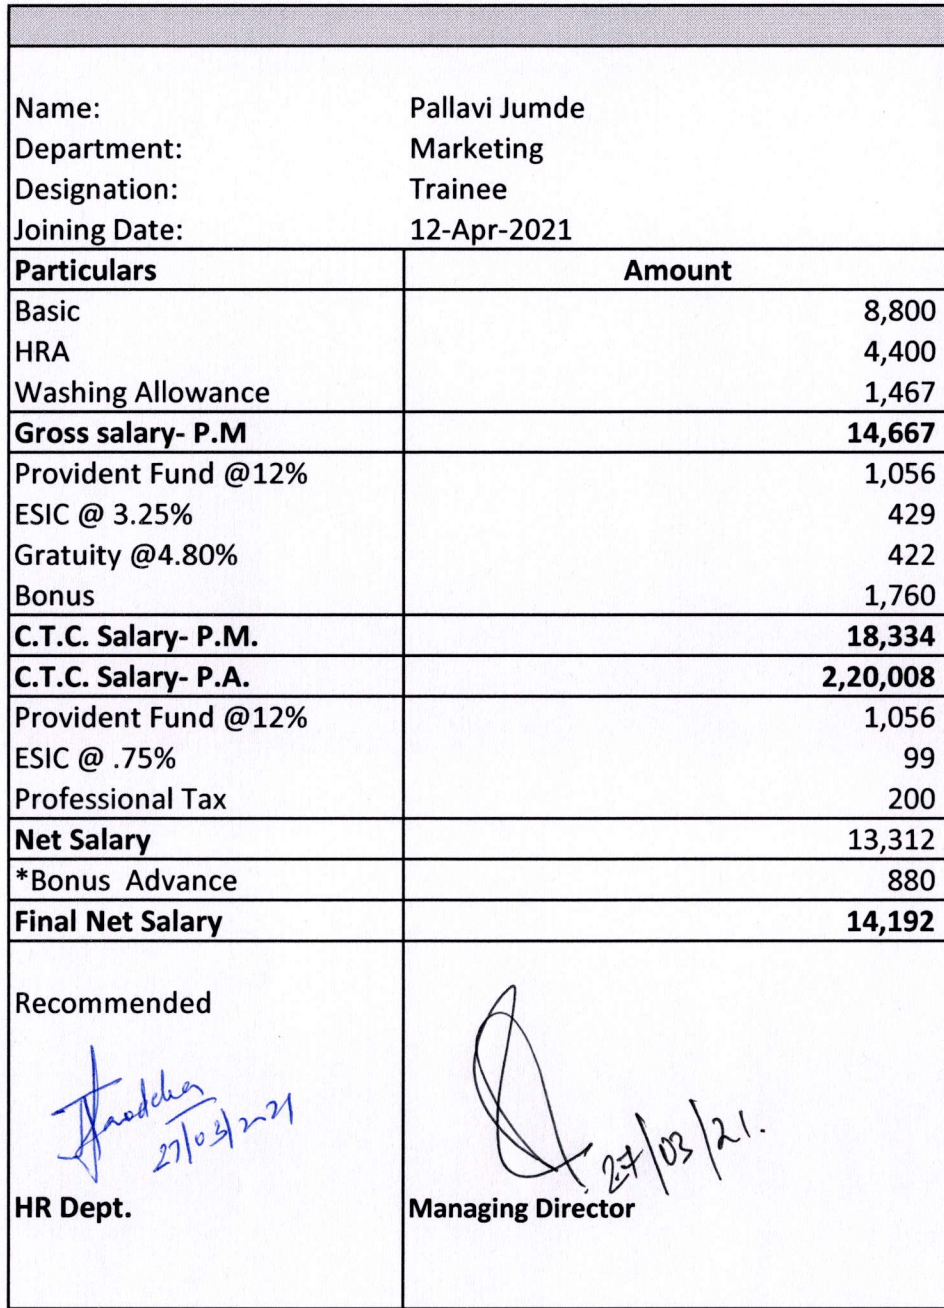 Name: Pallavi Jumde
Department: Marketing
Designation: Trainee
Joining Date: 12-Apr-2021
Particulars Amount
Basic 8,800
HRA 4,400
Washing Allowance 1,467
Gross salary- P.M 14,667
Provident Fund @12% 1,056
ESIC @ 3.25% 429
Gratuity @4.80% 422
Bonus 1,760
C.T.C. Salary- P.M. 18,334
C.T.C. Salary- P.A. 2,20,008
Provident Fund @12% 1,056
ESIC @ .75% 99
Professional Tax 200
Net Salary 13,312
*Bonus Advance 880
Final Net Salary 14,192
Recommended
27/03/2021 27/03/21.
HR Dept. Managing Director